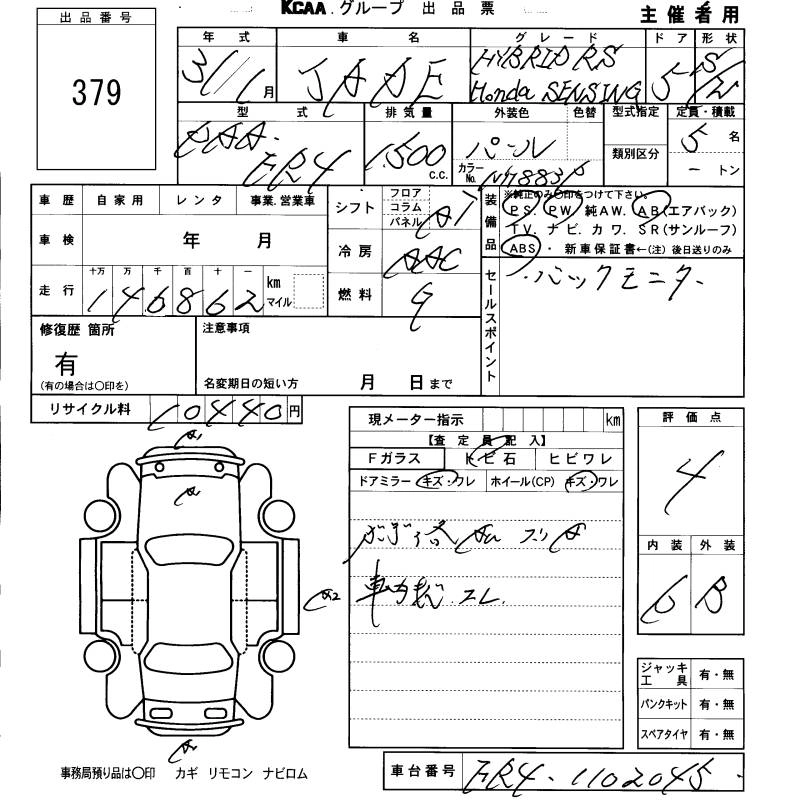 KCAA.グループ 出品票
主催者用
出品番号
379
年式 車名 グレード ドア 形状
31/1月 JADE HYBRID RS Honda SENSING 5 S/W
型式 排気量 外装色 色替 型式指定 定員・積載
類別区分
DAA-FR4 1,500 C.C. パール カラーNo. NH883P 5名 ートン
車歴 自家用 レンタ 事業.営業車
シフト フロア コラム パネル AT
車検 年 月
冷房 AAC
走行 十万 万 千 百 十 一 146862 km マイル
燃料 G
装備品
※純正のみ〇印をつけて下さい。
PS. PW. 純AW. AB(エアバック)
TV. ナビ. カワ. SR(サンルーフ)
ABS ・ 新車保証書←(注)後日送りのみ
セールスポイント
・バックモニター
修復歴 箇所
有
(有の場合は〇印を)
注意事項
名変期日の短い方 月 日まで
リサイクル料 10440円
現メーター指示 km
【査定員記入】
Fガラス トビ石 ヒビワレ
ドアミラー キズ・ワレ ホイール(CP) キズ・ワレ
評価点
4
内装 外装
6 B
A1
A
A2
A
ジャッキ工具 有・無
パンクキット 有・無
スペアタイヤ 有・無
事務局預り品は〇印 カギ リモコン ナビロム
車台番号 FR4-1102045